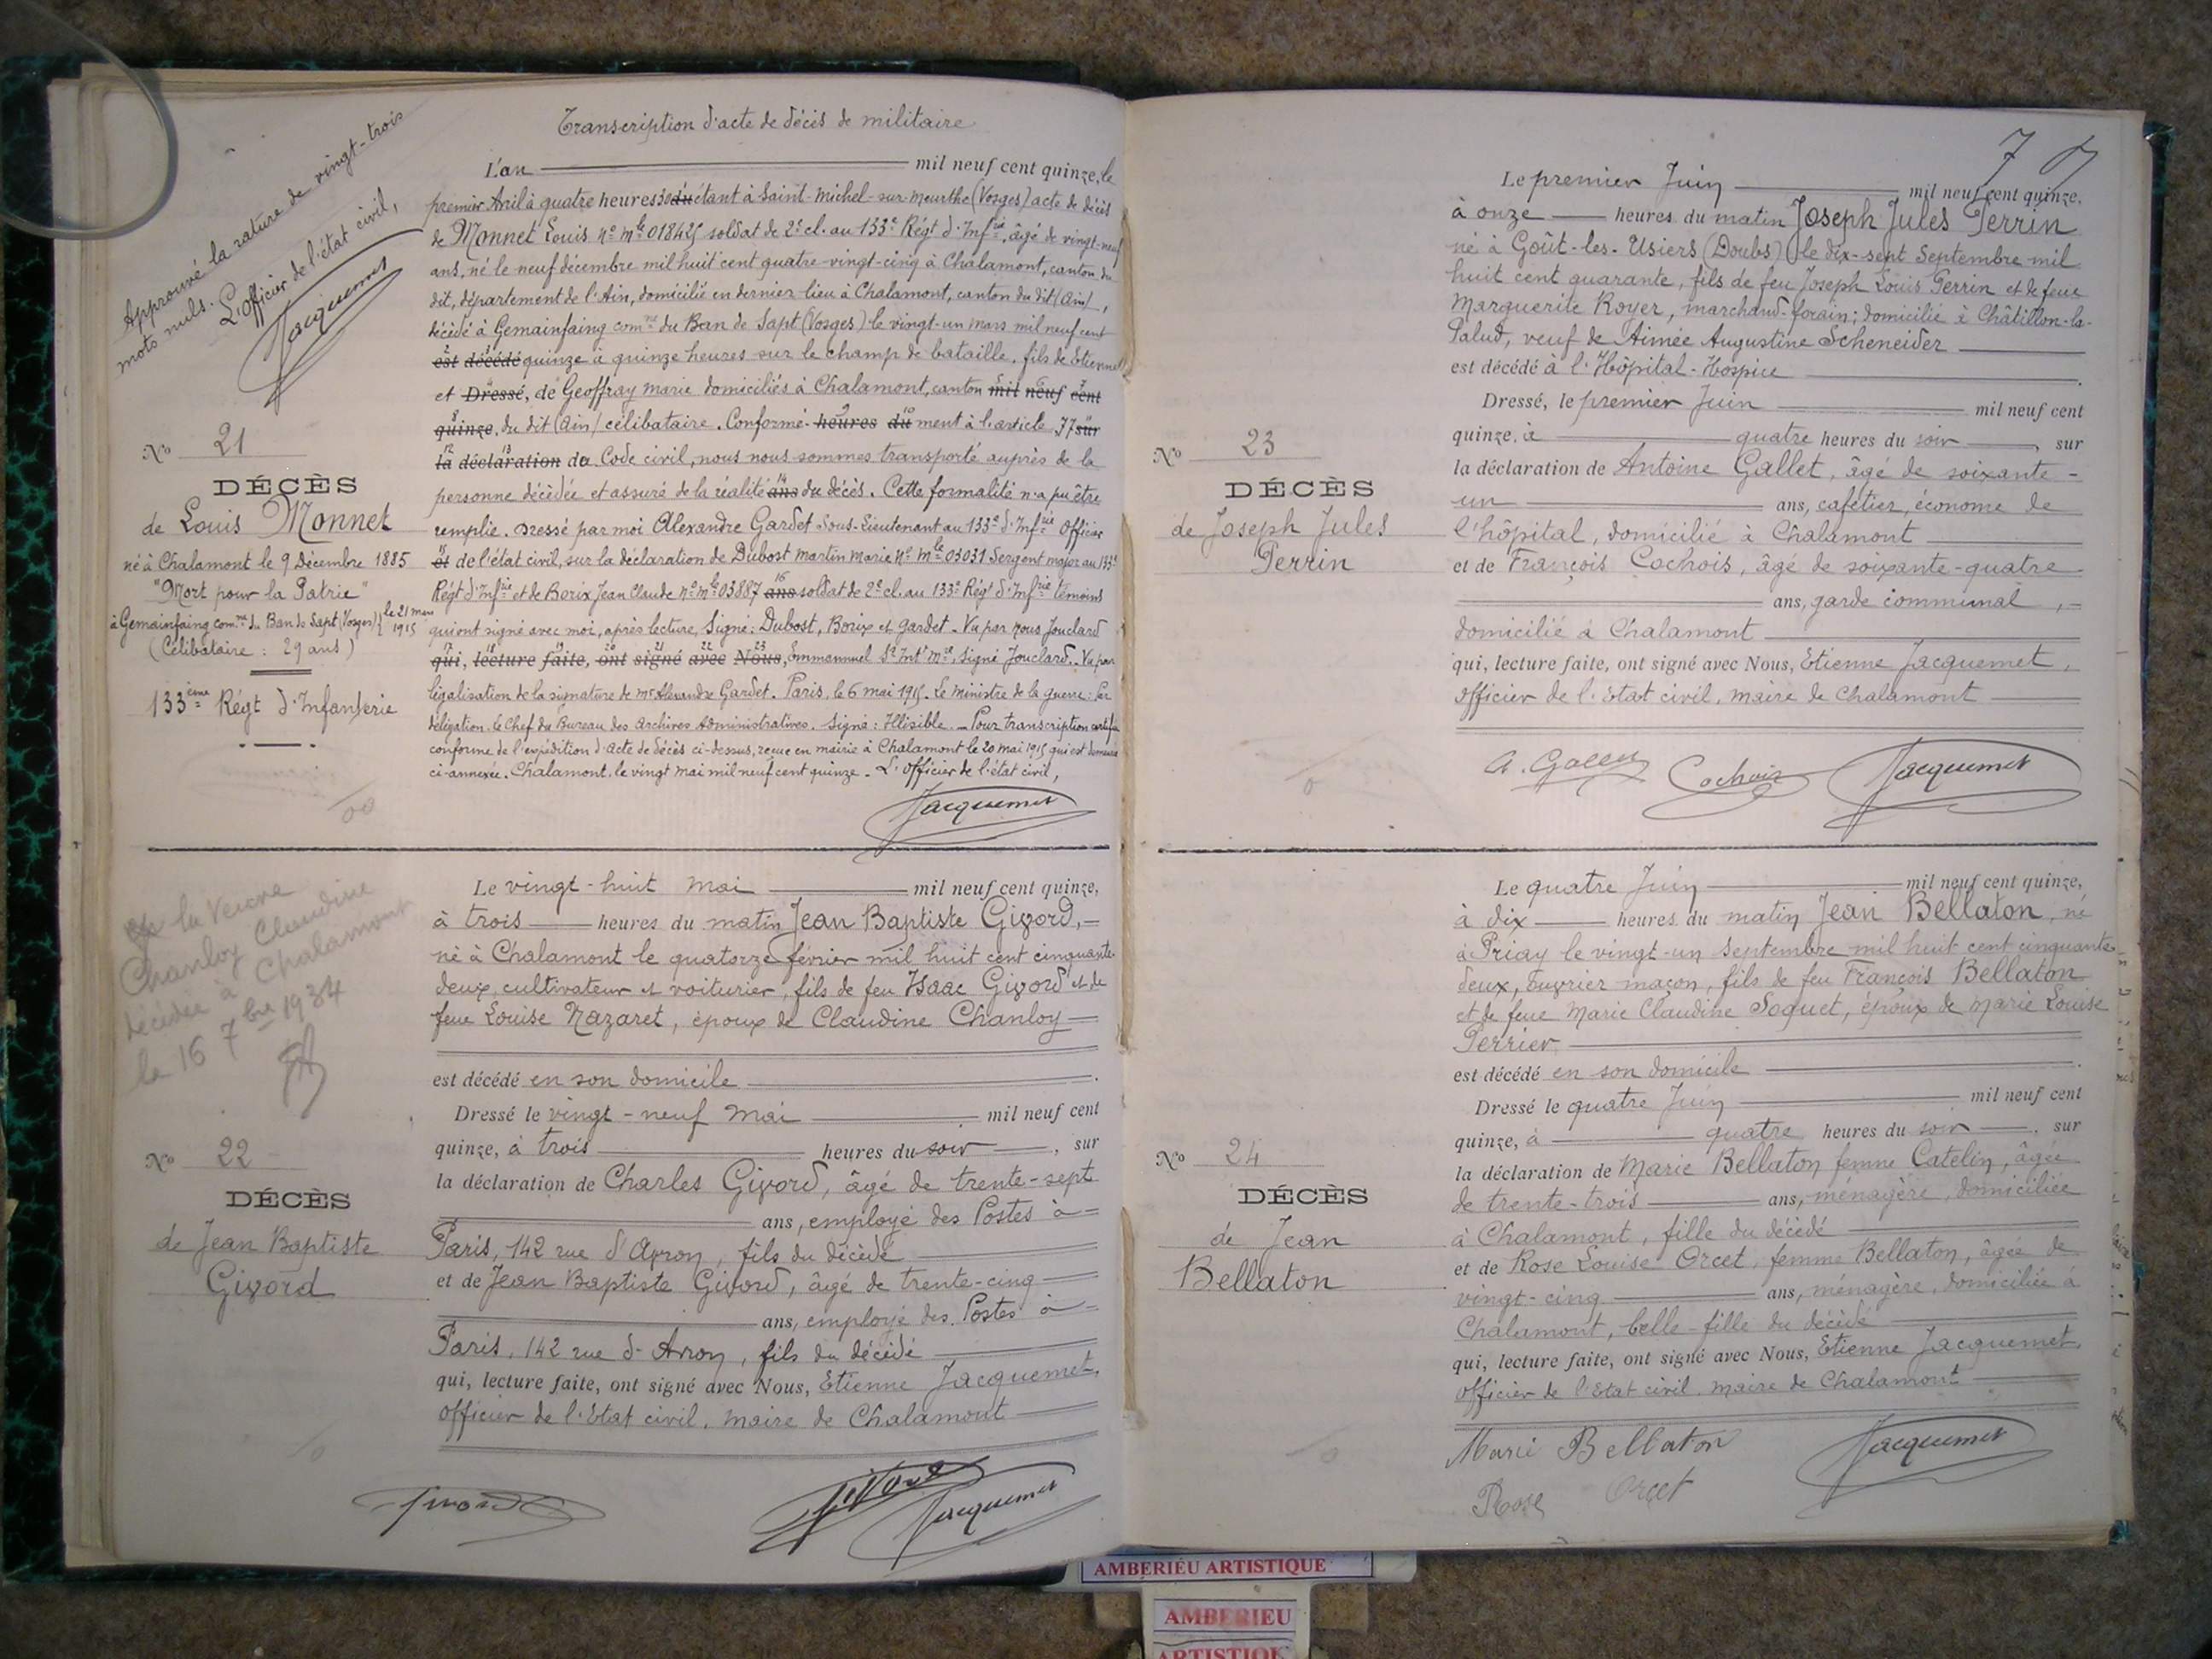 Transcription d'acte de décès de militaire
Approuvé la rature de vingt-trois
mots nuls. L'Officier de l'état civil,
Jacquemet
L'an mil neuf cent quinze, le
premier Avril à quatre heures 30 du étant à Saint-Michel-sur-Meurthe (Vosges) acte de décès
de Monnet Louis No Mle 018425 soldat de 2e cl. au 133e Régt d'Infrie, âgé de vingt-neuf
ans, né le neuf décembre mil huit cent quatre-vingt-cinq à Chalamont, canton du
dit, département de l'Ain, domicilié en dernier lieu à Chalamont, canton du dit (Ain),
décédé à Gemainfaing comne du Ban de Sapt (Vosges) le vingt-un mars mil neuf cent
est décédé quinze à quinze heures sur le champ de bataille, fils de Etienne
et Dressé, de Geoffray Marie domiciliés à Chalamont, canton mil neuf cent
quinze, du dit (Ain) célibataire. Conformé- heures du ment à l'article 77 sur
la déclaration de Code civil, nous nous sommes transporté auprès de la
personne décédée et assuré de la réalité ans du décès. Cette formalité n'a pu être
remplie. Dressé par moi Alexandre Gardet Sous-Lieutenant au 133e d'Infrie Officier
et de l'état civil, sur la déclaration de Dubost Martin Marie No Mle 03031 Sergent major au 133e
Régt d'Infrie et de Borix Jean Claude No Mle 03887 ans soldat de 2e cl. au 133e Régt d'Infrie témoins
qui ont signé avec moi, après lecture, Signé: Dubost, Borix et Gardet. Vu par nous Jouclard
qui, lecture faite, ont signé avec Nous, Emmanuel St Intt Mre Signé Jouclard. Vu par
légalisation de la signature de Mr Alexandre Gardet. Paris, le 6 mai 1915. Le Ministre de la guerre: Par
délégation, le Chef du Bureau des Archives Administratives. Signé: Illisible. Pour transcription certifiée
conforme de l'expédition d'acte de décès ci-dessus, reçue en mairie à Chalamont le 20 mai 1915 qui est demeurée
ci-annexée. Chalamont, le vingt mai mil neuf cent quinze. L'officier de l'état civil,
Jacquemet
No 21
DÉCÈS
de Louis Monnet
né à Chalamont le 9 Décembre 1885
"Mort pour la Patrie"
à Gemainfaing comne du Ban de Sapt (Vosges) le 21 mars 1915
(Célibataire : 29 ans)
133ème Régt d'Infanterie
Le vingt-huit mai mil neuf cent quinze,
à trois heures du matin Jean Baptiste Givord,
né à Chalamont le quatorze février mil huit cent cinquante-
deux, cultivateur et voiturier, fils de feu Isaac Givord et de
feue Louise Nazaret, époux de Claudine Chanloy
est décédé en son domicile.
Dressé le vingt-neuf mai mil neuf cent
quinze, à trois heures du soir, sur
la déclaration de Charles Givord, âgé de trente-sept
ans, employé des Postes à
Paris, 142 rue d'Avron, fils du décédé
et de Jean Baptiste Givord, âgé de trente-cinq
ans, employé des Postes à
Paris, 142 rue d'Avron, fils du décédé
qui, lecture faite, ont signé avec Nous, Etienne Jacquemet,
officier de l'Etat civil, maire de Chalamont
Givord
Givord
Jacquemet
la Veuve
Chanloy Claudine
décédée à Chalamont
le 16 7bre 1934
No 22
DÉCÈS
de Jean Baptiste
Givord
7
Le premier Juin mil neuf cent quinze,
à onze heures du matin Joseph Jules Perrin
né à Goût-les-Usiers (Doubs) le dix-sept Septembre mil
huit cent quarante, fils de feu Joseph Louis Perrin et de feue
Marguerite Royer, marchand-forain; domicilié à Châtillon-la-
Palud, veuf de Aimée Augustine Scheneider
est décédé à l'Hôpital-Hospice.
Dressé, le premier Juin mil neuf cent
quinze, à quatre heures du soir, sur
la déclaration de Antoine Gallet, âgé de soixante-
un ans, cafetier, économe de
l'hôpital, domicilié à Chalamont
et de François Cochois, âgé de soixante-quatre
ans, garde communal,
domicilié à Chalamont
qui, lecture faite, ont signé avec Nous, Etienne Jacquemet,
officier de l'Etat civil, maire de Chalamont
A. Gallet
Cochois
Jacquemet
No 23
DÉCÈS
de Joseph Jules
Perrin
Le quatre Juin mil neuf cent quinze,
à dix heures du matin Jean Bellaton, né
à Priay le vingt-un Septembre mil huit cent cinquante-
deux, ouvrier maçon, fils de feu François Bellaton
et de feue Marie Claudine Soquet, époux de Marie Louise
Perrier
est décédé en son domicile.
Dressé le quatre Juin mil neuf cent
quinze, à quatre heures du soir, sur
la déclaration de Marie Bellaton femme Catelin, âgée
de trente-trois ans, ménagère, domiciliée
à Chalamont, fille du décédé
et de Rose Louise Orcet, femme Bellaton, âgée de
vingt-cinq ans, ménagère, domiciliée à
Chalamont, belle-fille du décédé
qui, lecture faite, ont signé avec Nous, Etienne Jacquemet,
officier de l'Etat civil, maire de Chalamont
Marie Bellaton
Jacquemet
Rose Orcet
No 24
DÉCÈS
de Jean
Bellaton
AMBERIEU ARTISTIQUE
AMBERIEU
ARTISTIQUE